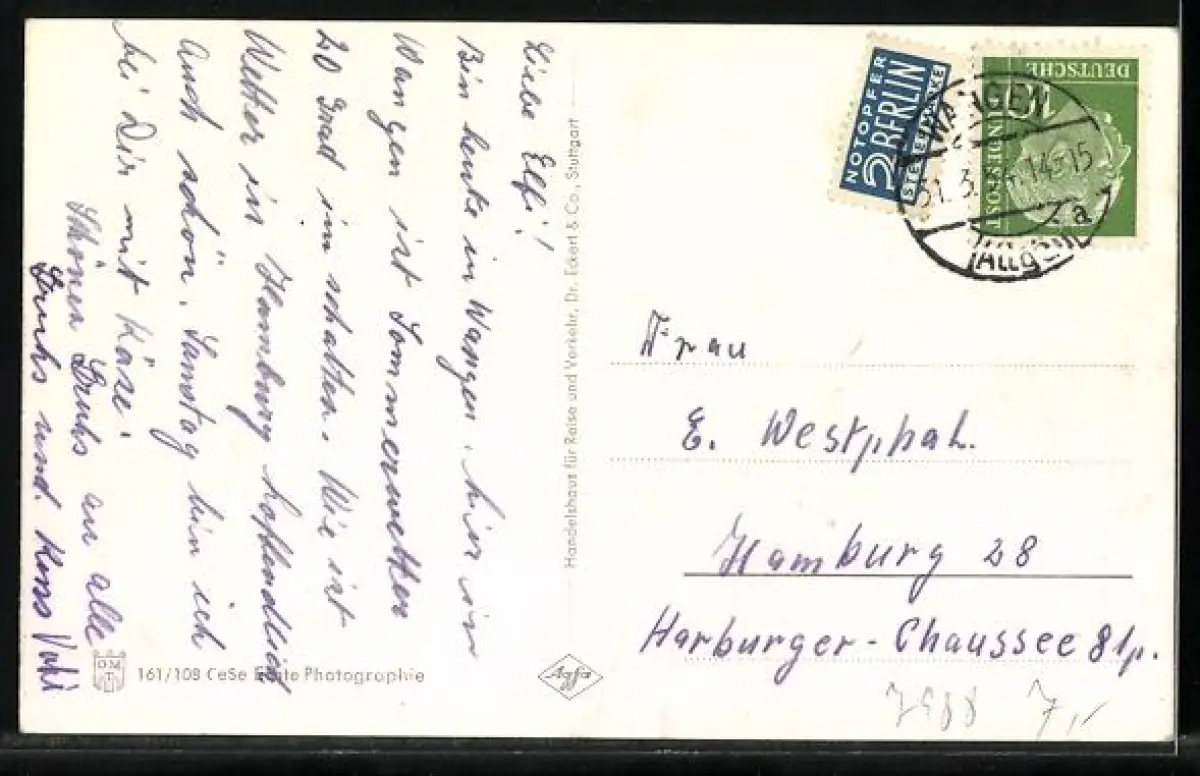 Liebe Elfi!
Bin heute in Wangen. hier in
Wangen ist Sommerwetter
20 Grad im schatten. Wie ist
Wetter in Hamburg hoffendlich
Auch schön. Samstag bin ich
bei Dir mit Käse.
Schönen Gruhs an alle
Gruhs und. Kuss Vati
Handelshaus für Reise und Verkehr, Dr. Eckert & Co., Stuttgart
161/108 CeSe Echte Photographie
Agfa
NOTOPFER
2 BERLIN
STEUERMARKE
DEUTSCHE
BUNDESPOST
10
WANGEN
31. 3. 54. 14-15
a
(Allgäu)
Frau
E. Westphal.
Hamburg 28
Harburger-Chaussee 81p.
7,-